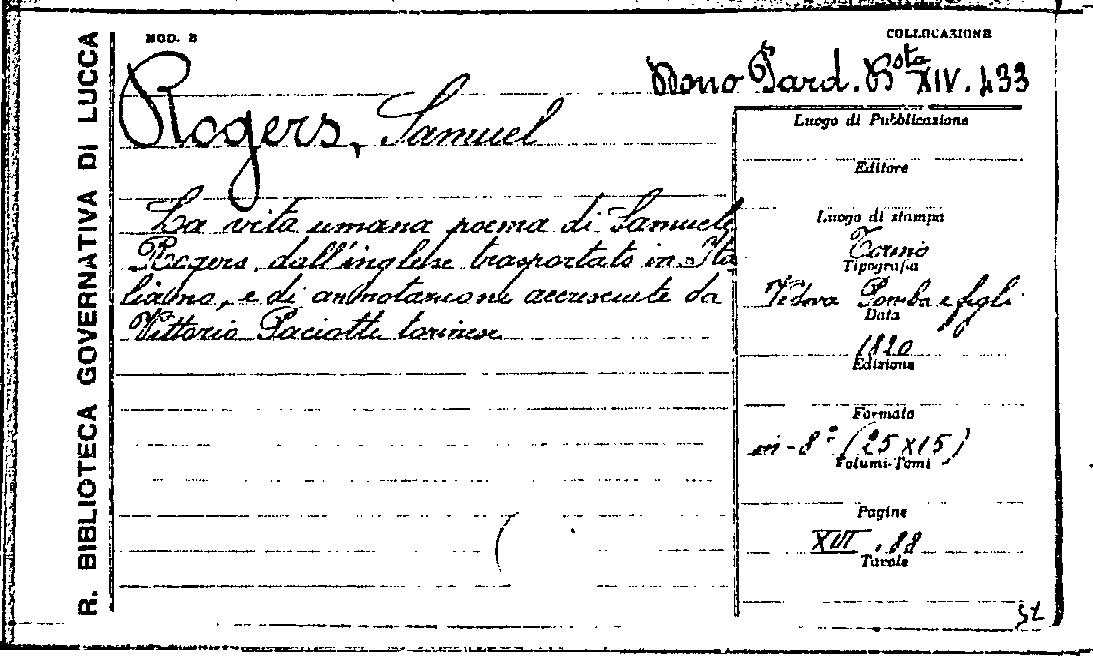 R. BIBLIOTECA GOVERNATIVA DI LUCCA
MOD. B
COLLOCAZIONE
Dono Pard. Bsta XIV. 433
Rogers, Samuel
La vita umana poema di Samuele
Rogers, dall'inglese trasportato in Ita
liano, e di annotazione accresciute da
Vittorio Paciotti torinese
Luogo di Pubblicazione
Editore
Luogo di stampa
Torino
Tipografia
Vedova Pomba e figli
Data
1820
Edizione
Formato
in-8° (25X15)
Volumi-Tomi
Pagine
XVI, 88
Tavole